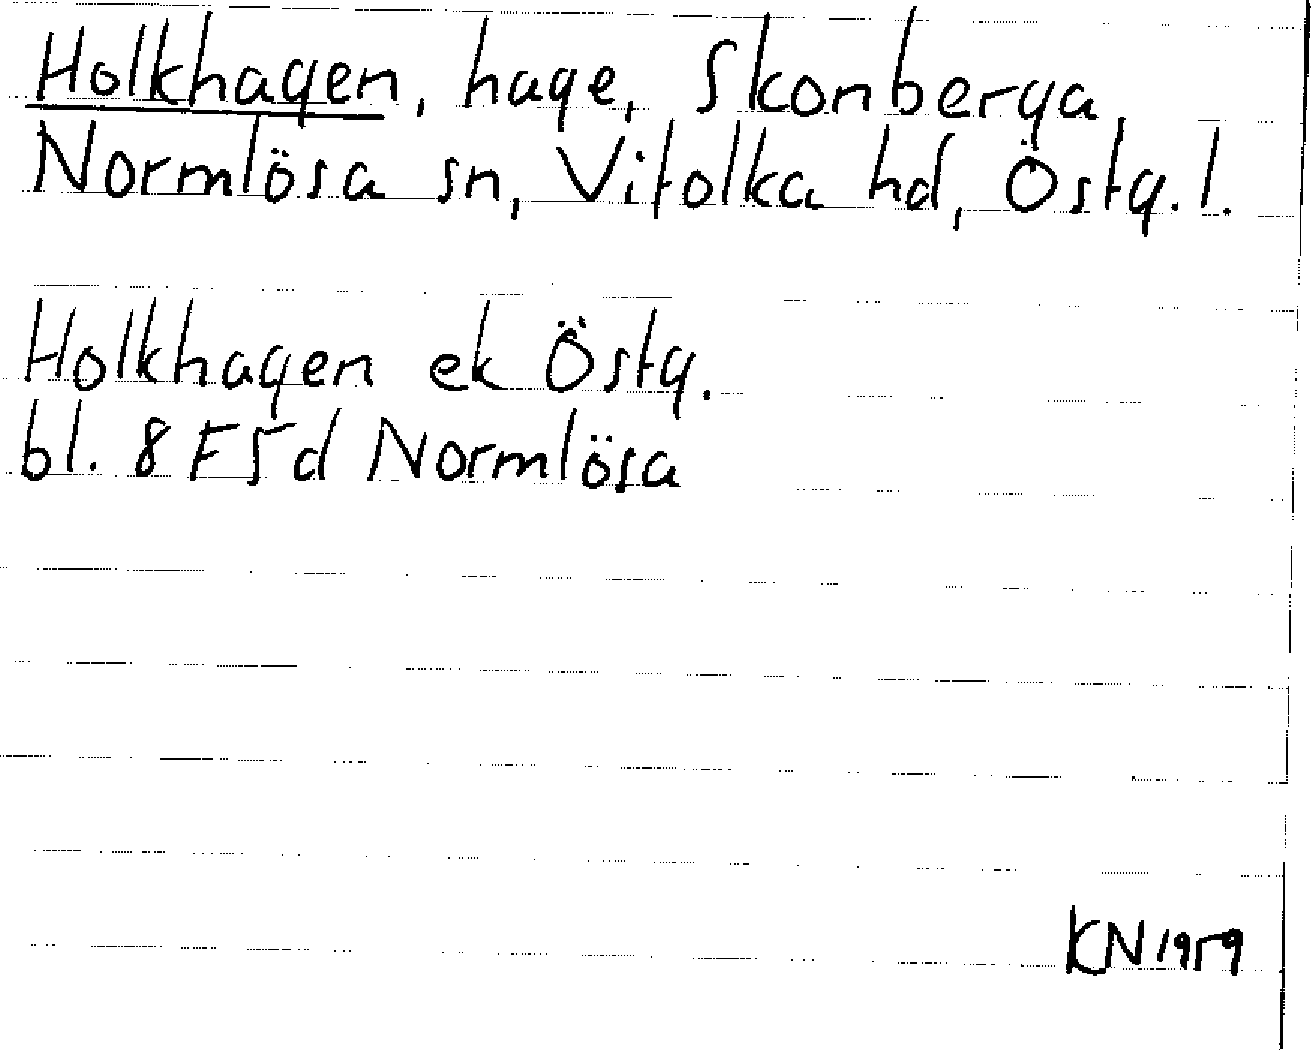 Holkhagen, hage, Skonberga
Normlösa sn, Vifolka hd, Östg. l.
Holkhagen ek Östg.
bl. 8 F5d Normlösa
KN1959